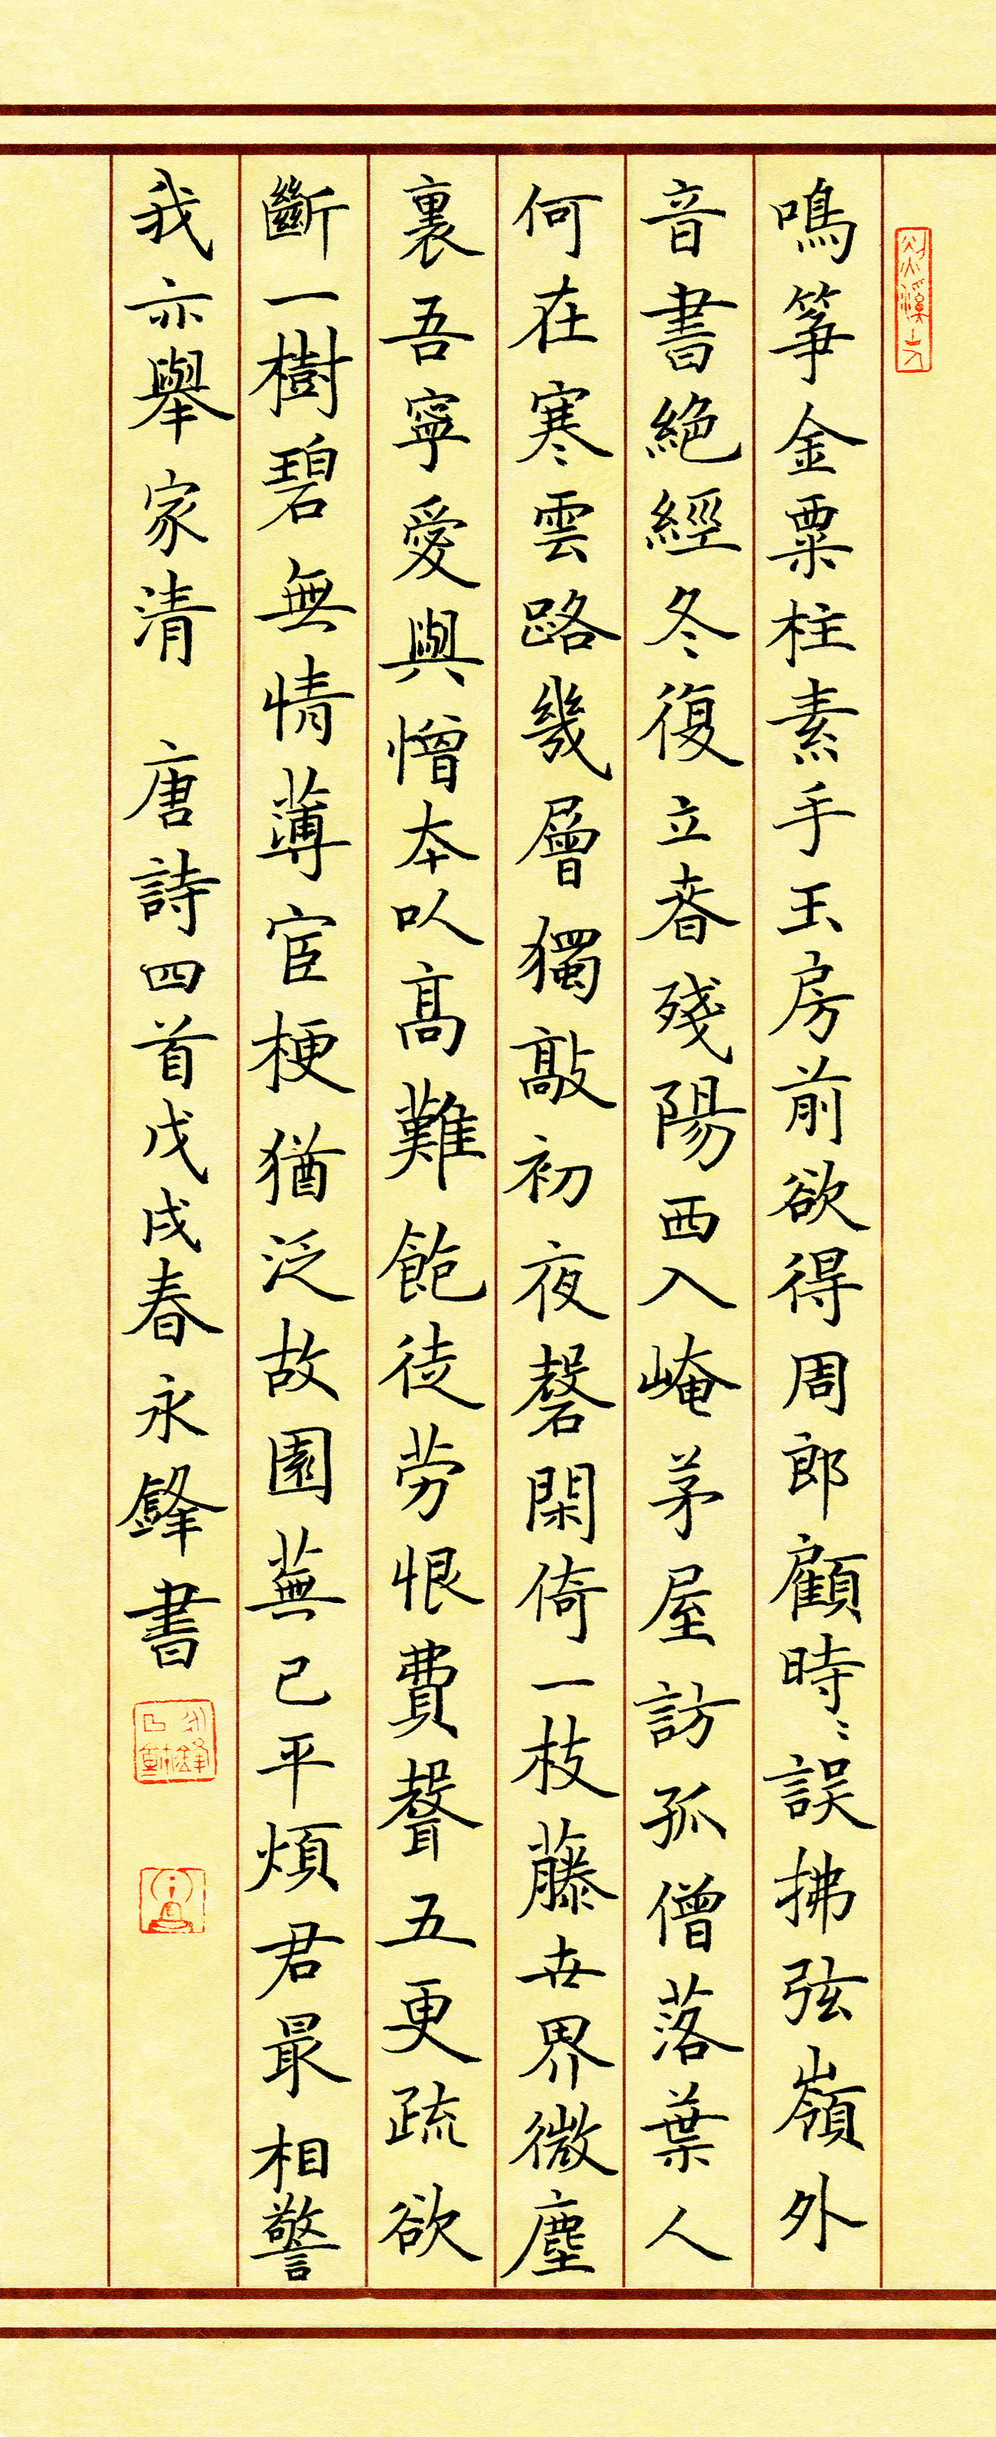 鳴箏金粟柱素手玉房前欲得周郎顧時〻誤拂弦嶺外
音書絶經冬復立春殘陽西入崦茅屋訪孤僧落葉人
何在寒雲路幾層獨敲初夜磬閑倚一枝藤世界微塵
裏吾寧愛與憎本以高難飽徒勞恨費聲五更疏欲
斷一樹碧無情薄宦梗猶泛故園蕪已平煩君最相警
我亦舉家清 唐詩四首戊戌春永鋒書